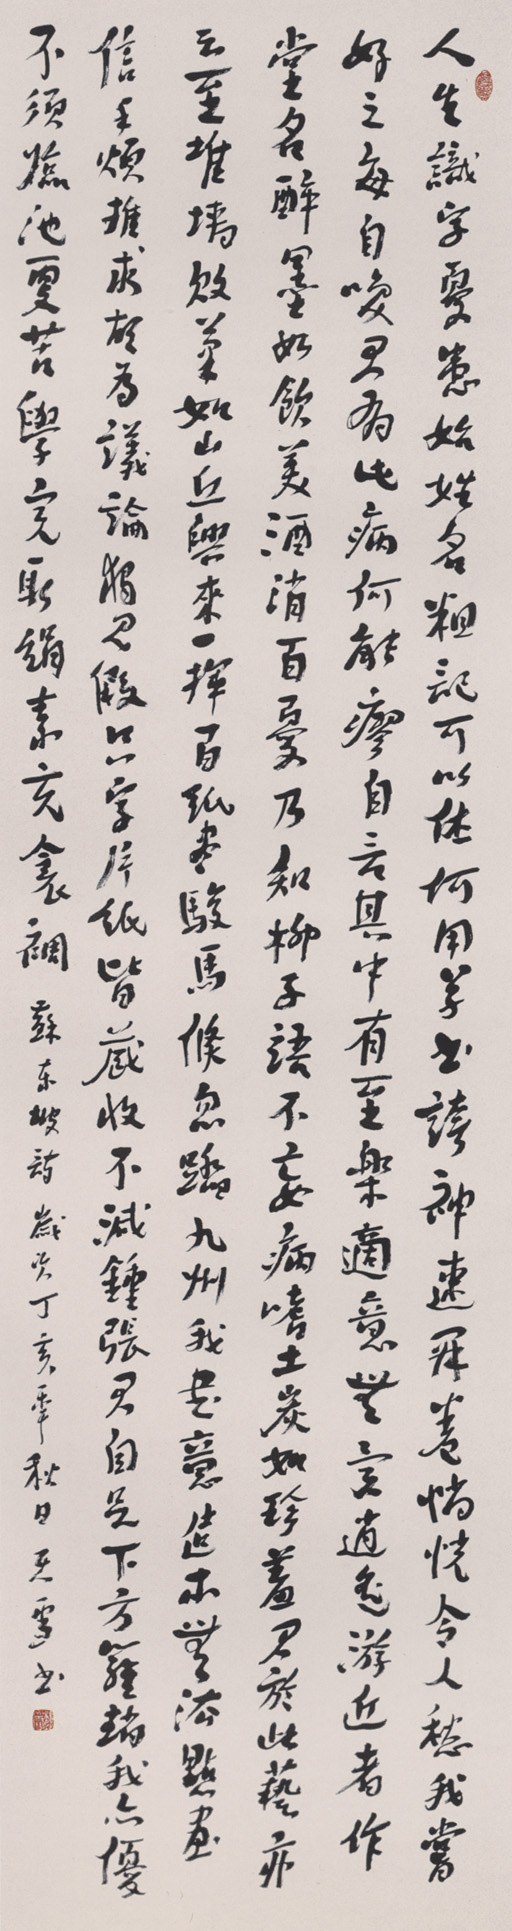 人生識字憂患始姓名粗記可以休何用草書誇神速開卷惝怳令人愁我嘗
好之每自笑君有此病何能瘳自言其中有至樂適意無異逍遙游近者作
堂名醉墨如飲美酒消百憂乃知柳子語不妄病嗜土炭如珍羞君於此藝亦
云至堆墻敗筆如山丘興來一揮百紙盡駿馬倏忽踏九州我書意造本無法點畫
信手煩推求胡為議論獨見假只字片紙皆藏收不減鍾張君自足下方羅趙我亦優
不須臨池更苦學完取絹素充衾裯 蘇東坡詩 歲次丁亥年秋日 書